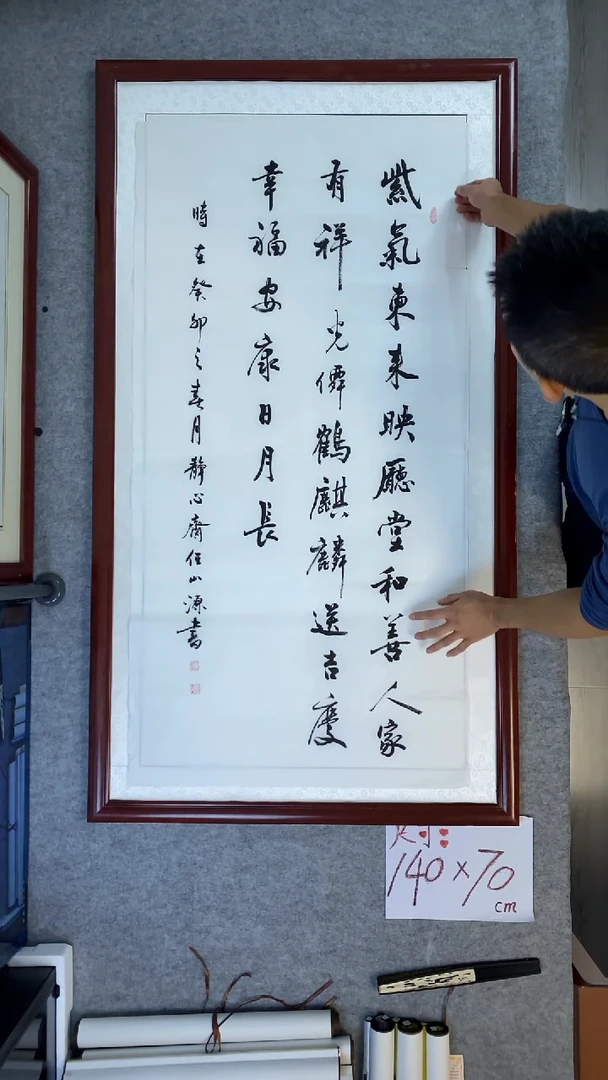 紫氣東来映廳堂和善人家
有祥光僊鶴麒麟送吉慶
幸福安康日月長
時在癸卯之春月静心齋任山源書
尺寸:
140×70
cm